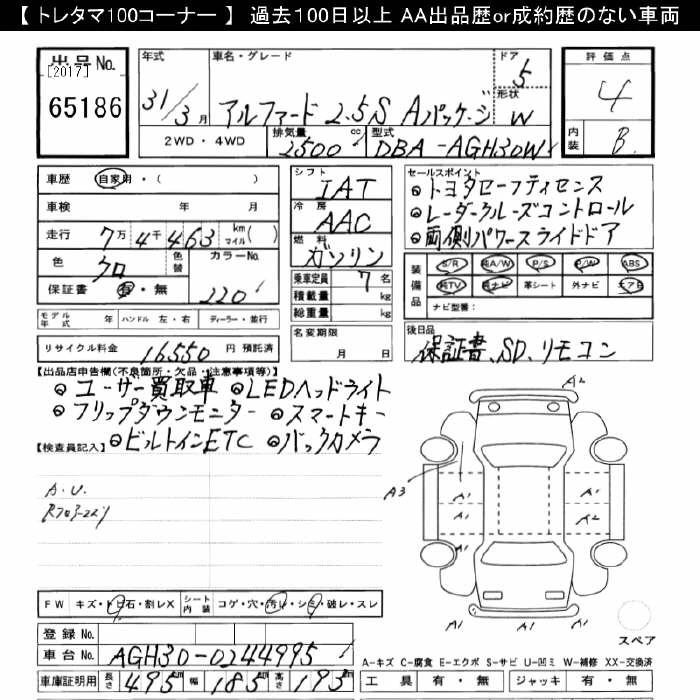 【 トレタマ100コーナー 】 過去100日以上 AA出品歴or成約歴のない車両
出品No.
[2017]
65186
年式 車名・グレード ドア 5 評価点
31/3月 アルファード 2.5S Aパッケージ 形状 W 4
2WD・4WD 排気量 2500cc 型式 DBA-AGH30W 内装 B
車歴 自家用・( )
車検 年 月
走行 7万4千463 km マイル( )
色 クロ 色替 カラーNo. 220
保証書 有・無
モデル年式 年 ハンドル 左・右 ディーラー・並行
リサイクル料金 16550 円 預託済
シフト IAT
冷房 AAC
燃料 ガソリン
乗車定員 7名
積載量 kg
総重量 kg
名変期限 月 日
セールスポイント
◎トヨタセーフティセンス
◎レーダークルーズコントロール
◎両側パワースライドドア
装備品 S/R 純A/W P/S P/W ABS
純TV 純ナビ 革シート 外ナビ エアB
ナビ型番:
後日品
保証書、SD、リモコン
【出品店申告欄(不良箇所・欠品・注意事項等)】
◎ユーザー買取車 ◎LEDヘッドライト
◎フリップダウンモニター ◎スマートキー
◎ビルトインETC ◎バックカメラ
【検査員記入】
A.U.
FW キズ・トビ石・割レX シート内装 コゲ・穴・汚レ・シミ・破レ・スレ
登録No.
車台No. AGH30-0244995
車庫証明用 長さ 495 幅 185 高さ 193
A2
A3
A1 A1
A1 A2
A1 A1
A1 A1
スペア
A-キズ C-腐食 E-エクボ S-サビ U-凹ミ W-補修 XX-交換済
工具 有・無 ジャッキ 有・無